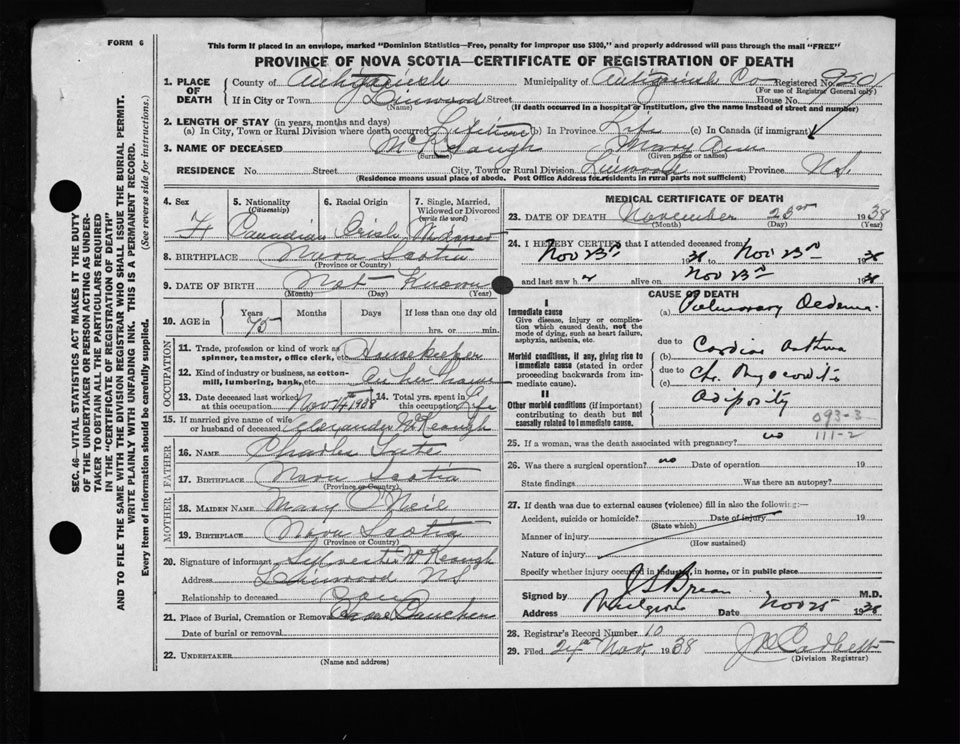 FORM 6
This form if placed in an envelope, marked "Dominion Statistics—Free, penalty for improper use $300," and properly addressed will pass through the mail "FREE"
PROVINCE OF NOVA SCOTIA—CERTIFICATE OF REGISTRATION OF DEATH
1. PLACE OF DEATH County of Antigonish Municipality of Antigonish Co Registered No.
(For use of Registrar General only)
If in City or Town Linwood Street House No.
(Name) (If death occurred in a hospital or institution, give the name instead of street and number)
2. LENGTH OF STAY (in years, months and days)
(a) In City, Town or Rural Division where death occurred Lifetime (b) In Province Life (c) In Canada (if immigrant)
3. NAME OF DECEASED McKeough Mary Ann
(Surname) (Given name or names)
RESIDENCE No. Street City, Town or Rural Division Linwood Province N.S.
(Residence means usual place of abode. Post Office Address for residents in rural parts not sufficient)
4. Sex 5. Nationality (Citizenship) 6. Racial Origin 7. Single, Married, Widowed or Divorced (write the word)
F Canadian Irish Married
8. BIRTHPLACE Nova Scotia
(Province or Country)
9. DATE OF BIRTH Not Known
(Month) (Day) (Year)
10. AGE in Years Months Days If less than one day
75 hrs. or min.
OCCUPATION
11. Trade, profession or kind of work as spinner, teamster, office clerk, etc. Housekeeper
12. Kind of industry or business, as cotton-mill, lumbering, bank, etc. in her home
13. Date deceased last worked at this occupation Nov 1938 14. Total yrs. spent in this occupation Life
15. If married give name of wife or husband of deceased Alexander McKeough
FATHER
16. NAME Charles
17. BIRTHPLACE Nova Scotia
(Province or Country)
MOTHER
18. MAIDEN NAME Mary O'Neil
19. BIRTHPLACE Nova Scotia
(Province or Country)
20. Signature of informant McKeough
Address Linwood N.S
Relationship to deceased Son
21. Place of Burial, Cremation or Removal
Date of burial or removal
22. UNDERTAKER
(Name and address)
MEDICAL CERTIFICATE OF DEATH
23. DATE OF DEATH November 23rd 1938
(Month) (Day) (Year)
24. I HEREBY CERTIFY that I attended deceased from
Nov 23rd 1938 to Nov 23rd 1938
and last saw h alive on Nov 23rd 1938
CAUSE OF DEATH
I
Immediate cause
Give disease, injury or complication which caused death, not the mode of dying, such as heart failure, asphyxia, asthenia, etc.
(a) Pulmonary Oedema
due to
Morbid conditions, if any, giving rise to immediate cause (stated in order proceeding backwards from immediate cause).
(b) Cardiac Asthma
due to
(c) Ch. Myocarditis
II
Other morbid conditions (if important) contributing to death but not causally related to immediate cause.
Adiposity
093-3
111-2
25. If a woman, was the death associated with pregnancy? no
26. Was there a surgical operation? no Date of operation 19
State findings Was there an autopsy?
27. If death was due to external causes (violence) fill in also the following:
Accident, suicide or homicide? Date of injury 19
(State which)
Manner of injury
(How sustained)
Nature of injury
Specify whether injury occurred in industry, in home, or in public place
Signed by M.D.
Address Mulgrave Date Nov 25 1938
28. Registrar's Record Number 10
29. Filed 24th Nov. 1938
(Division Registrar)
SEC. 46—VITAL STATISTICS ACT MAKES IT THE DUTY
OF THE UNDERTAKER OR PERSON ACTING AS UNDERTAKER TO OBTAIN ALL THE PARTICULARS REQUIRED
IN THE "CERTIFICATE OF REGISTRATION OF DEATH"
AND TO FILE THE SAME WITH THE DIVISION REGISTRAR WHO SHALL ISSUE THE BURIAL PERMIT.
WRITE PLAINLY WITH UNFADING INK. THIS IS A PERMANENT RECORD.
Every item of information should be carefully supplied. (See reverse side for instructions.)